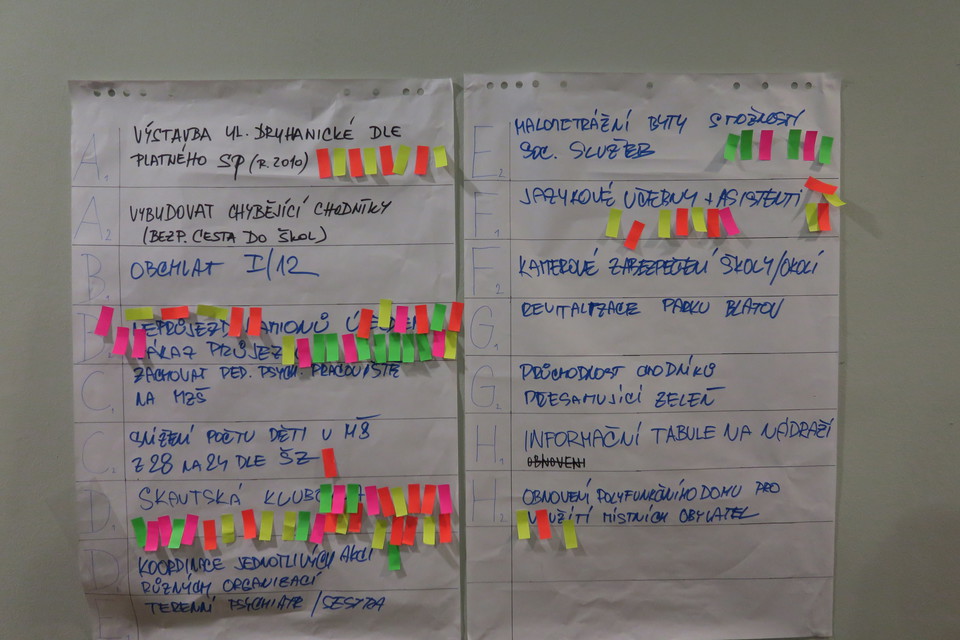 A1 VÝSTAVBA UL. DRUHANICKÉ DLE
PLATNÉHO SP (R. 2010)
A2 VYBUDOVAT CHYBĚJÍCÍ CHODNÍKY
(BEZP. CESTA DO ŠKOL)
B1 OBCHVAT I/12
B2 NEPRŮJEZD KAMIONŮ
ZÁKAZ PRŮJEZDU
C1 ZACHOVAT PED. PSYCH. PRACOVIŠTĚ
NA MZŠ
C2 SNÍŽENÍ POČTU DĚTÍ V MŠ
Z 28 NA 24 DLE ŠZ
D1 SKAUTSKÁ KLUBOVNA
D2 KOORDINACE JEDNOTLIVÝCH AKCÍ
RŮZNÝCH ORGANIZACÍ
E1 TERENNÍ PSYCHIATR/SESTRA
E2 MALOMETRÁŽNÍ BYTY S MOŽNOSTÍ
SOC. SLUŽEB
F1 JAZYKOVÉ UČEBNY + ASISTENTI
F2 KAMEROVÉ ZABEZPEČENÍ ŠKOLY/OKOLÍ
G1 REVITALIZACE PARKU BLATOV
G2 PRŮCHODNOST CHODNÍKŮ
PŘESAHUJÍCÍ ZELEŇ
H1 INFORMAČNÍ TABULE NA NÁDRAŽÍ
OBNOVENI
H2 OBNOVENÍ POLYFUNKČNÍHO DOMU PRO
VYUŽITÍ MÍSTNÍCH OBYVATEL